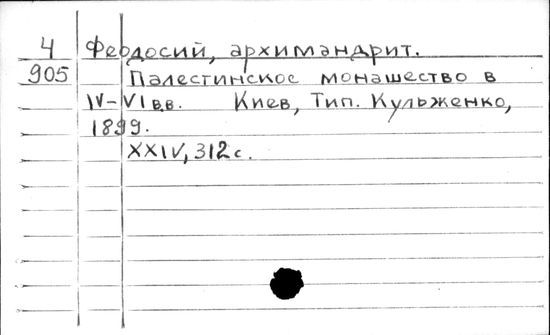 4 Феодосий, архимандрит.
905 Палестинское монашество в
IV-VI вв. Киев, Тип. Кульженко,
1899.
XXIV, 312 с.